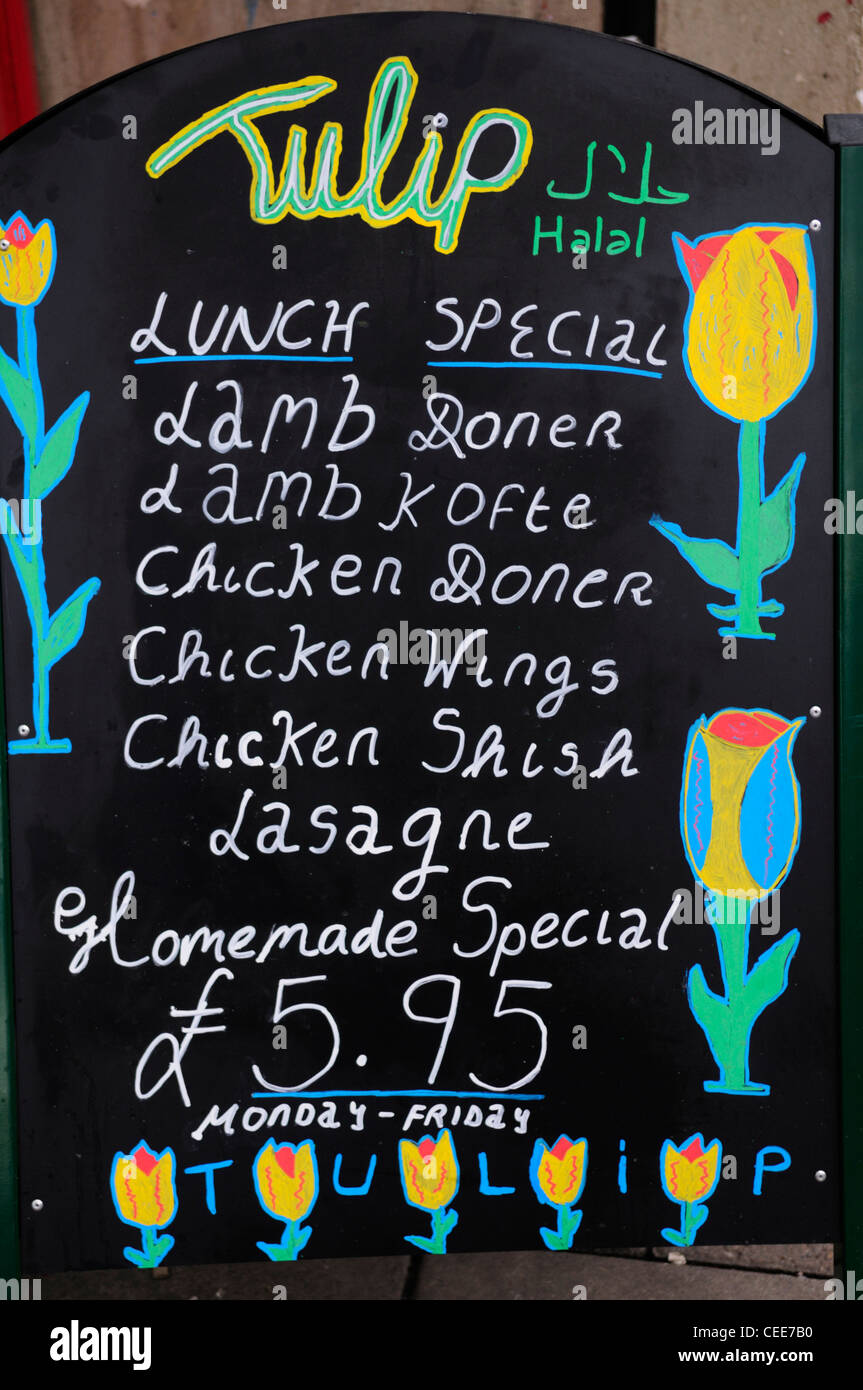 Tulip
حلال
Halal
LUNCH SPECIAL
Lamb Doner
Lamb Kofte
Chicken Doner
Chicken Wings
Chicken Shish
Lasagne
& Homemade Special
£5.95
MONDAY-FRIDAY
TULiP
alamy
Image ID: CEE7B0
www.alamy.com